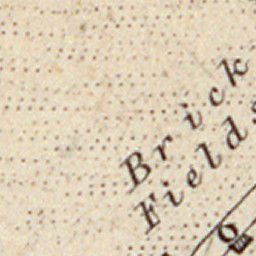 Brick
Fields